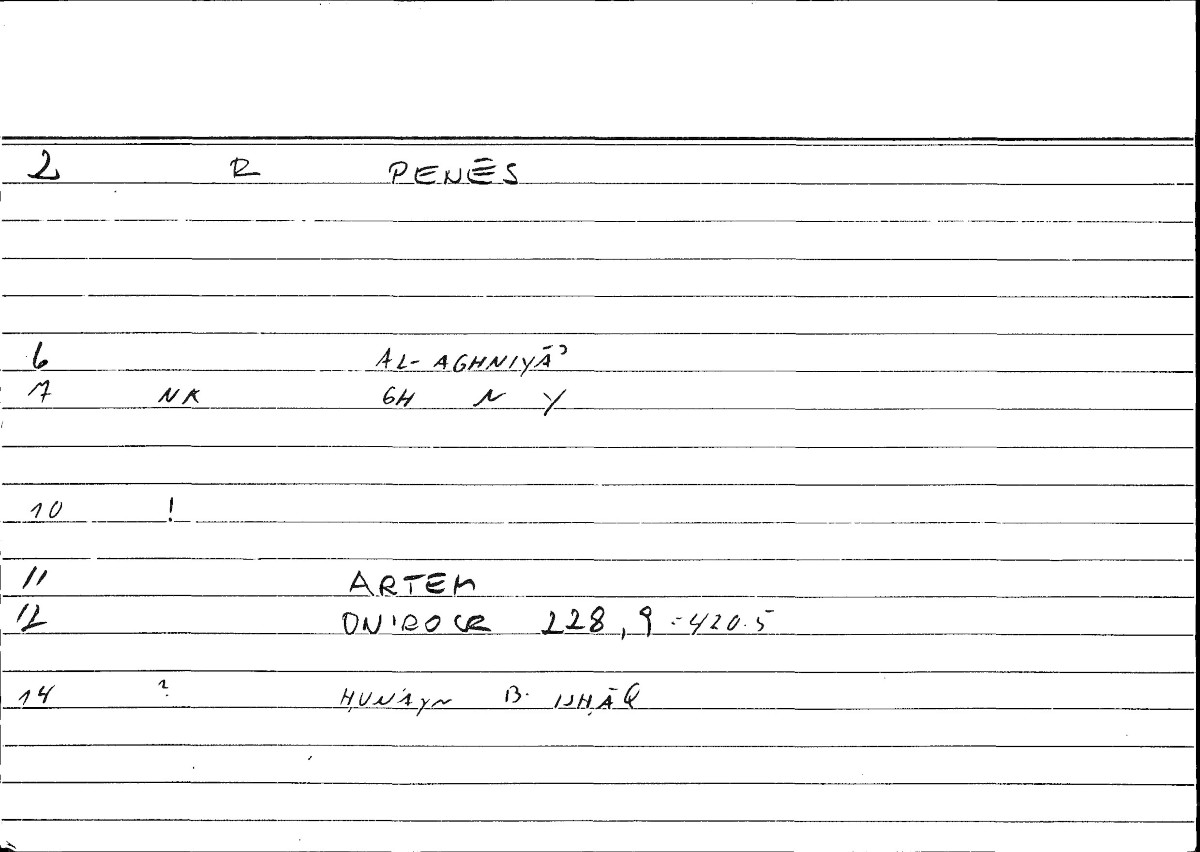 2 R PENĒS
6 AL-AGHNIYĀʾ
7 NK GH N Y
10 !
11 ARTEM
12 ONIROCR 228,9 = 420.5
14 ? ḤUNAYN B. ISḤĀQ